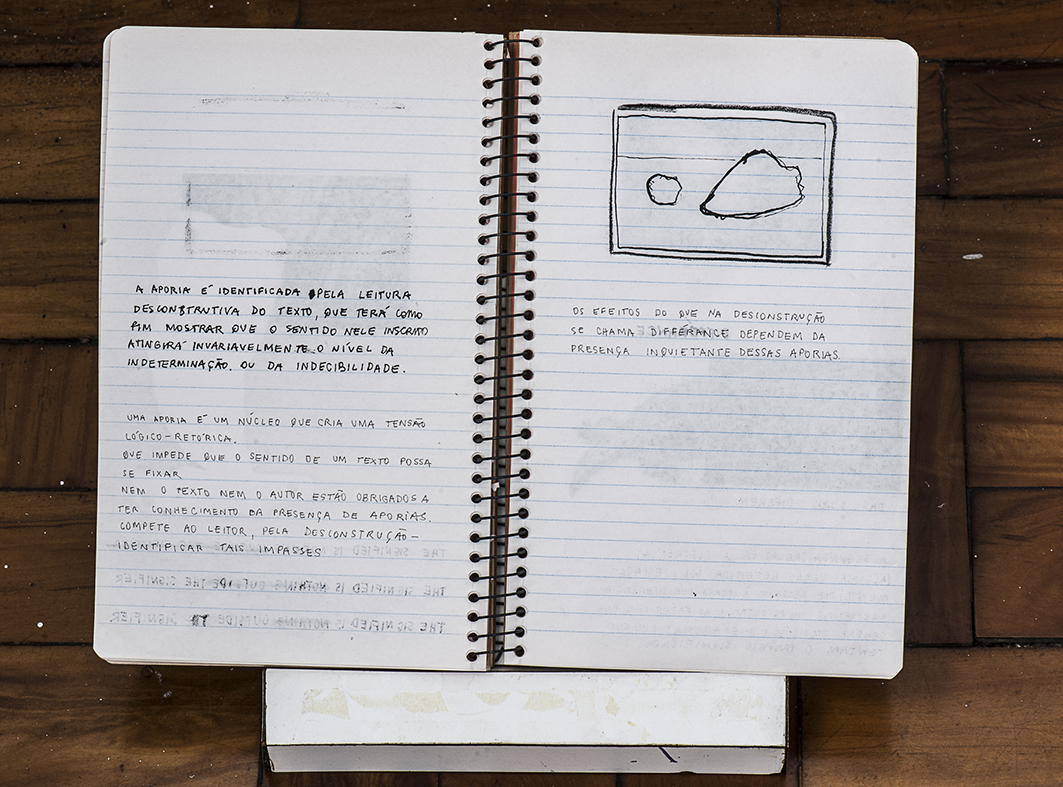 A APORIA É IDENTIFICADA PELA LEITURA
DESCONSTRUTIVA DO TEXTO, QUE TERÁ COMO
FIM MOSTRAR QUE O SENTIDO NELE INSCRITO
ATINGIRÁ INVARIAVELMENTE O NÍVEL DA
INDETERMINAÇÃO. OU DA INDECIBILIDADE.
UMA APORIA É UM NÚCLEO QUE CRIA UMA TENSÃO
LÓGICO-RETÓRICA.
QUE IMPEDE QUE O SENTIDO DE UM TEXTO POSSA
SE FIXAR
NEM O TEXTO NEM O AUTOR ESTÃO OBRIGADOS A
TER CONHECIMENTO DA PRESENÇA DE APORIAS.
COMPETE AO LEITOR, PELA DESCONSTRUÇÃO-
IDENTIFICAR TAIS IMPASSES
THE SIGNIFIED IS
THE SIGNIFIED IS NOTHING OUTSIDE THE SIGNIFIER
THE SIGNIFIED IS NOTHING OUTSIDE SIGNIFIER
OS EFEITOS DO QUE NA DESCONSTRUÇÃO
SE CHAMA DIFFÉRANCE DEPENDEM DA
PRESENÇA INQUIETANTE DESSAS APORIAS.